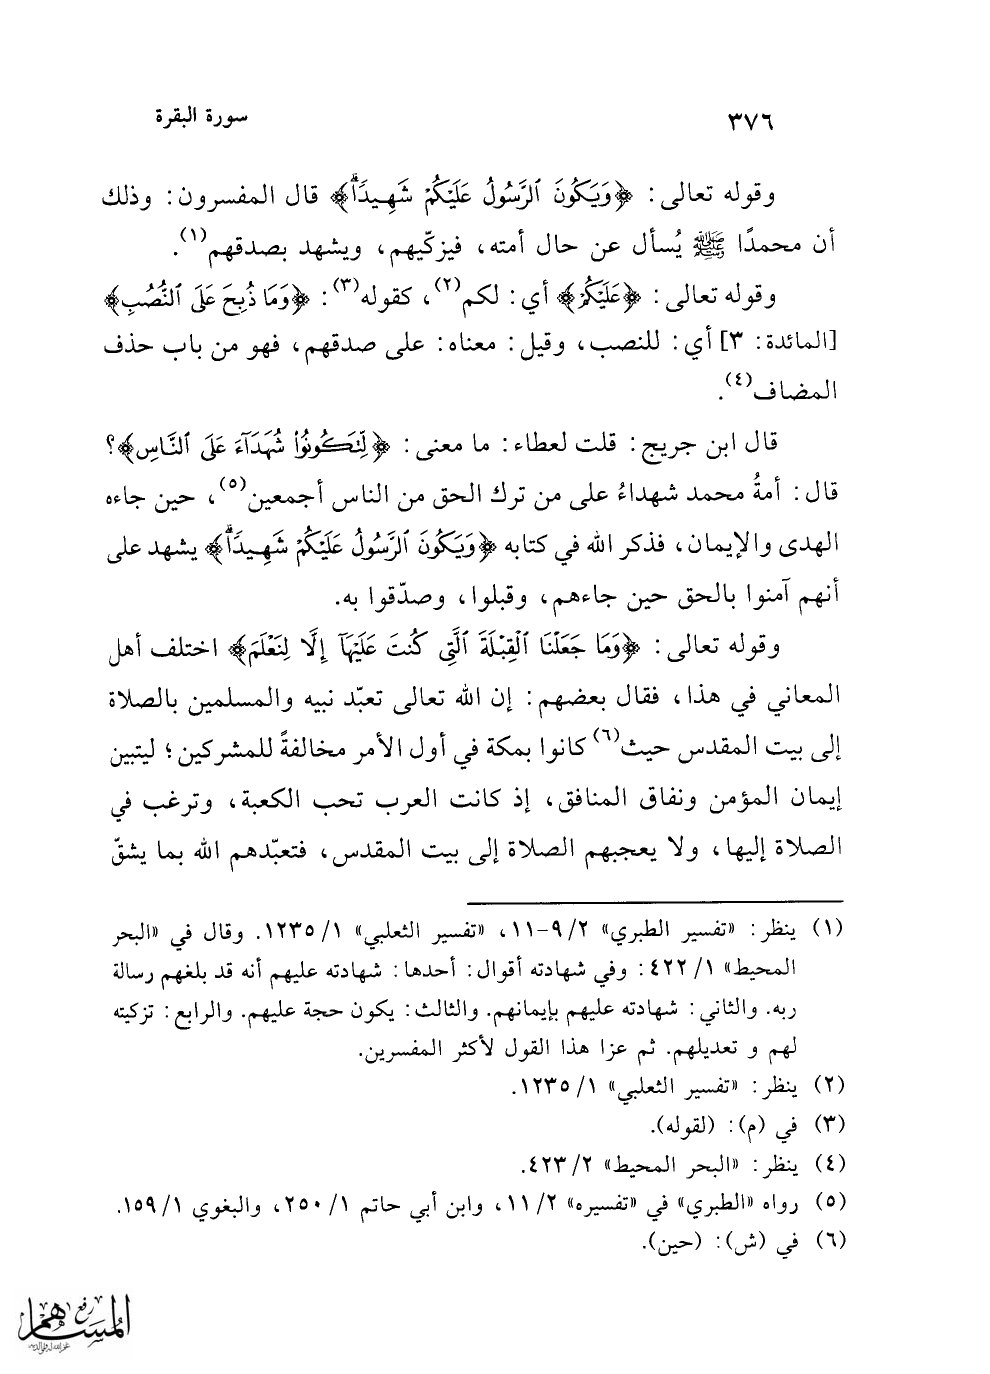 ٣٧٦ سورة البقرة
وقوله تعالى: ﴿وَيَكُونَ ٱلرَّسُولُ عَلَيْكُمْ شَهِيدًاۗ﴾ قال المفسرون: وذلك
أن محمدًا ﷺ يُسأل عن حال أمته، فيزكّيهم، ويشهد بصدقهم(١).
وقوله تعالى: ﴿عَلَيْكُمْ﴾ أي: لكم(٢)، كقوله(٣): ﴿وَمَا ذُبِحَ عَلَى ٱلنُّصُبِ﴾
[المائدة: ٣] أي: للنصب، وقيل: معناه: على صدقهم، فهو من باب حذف
المضاف(٤).
قال ابن جريج: قلت لعطاء: ما معنى: ﴿لِّتَكُونُوا۟ شُهَدَآءَ عَلَى ٱلنَّاسِ﴾؟
قال: أمةُ محمد شهداءُ على من ترك الحق من الناس أجمعين(٥)، حين جاءه
الهدى والإيمان، فذكر الله في كتابه ﴿وَيَكُونَ ٱلرَّسُولُ عَلَيْكُمْ شَهِيدًاۗ﴾ يشهد على
أنهم آمنوا بالحق حين جاءهم، وقبلوا، وصدّقوا به.
وقوله تعالى: ﴿وَمَا جَعَلْنَا ٱلْقِبْلَةَ ٱلَّتِى كُنتَ عَلَيْهَآ إِلَّا لِنَعْلَمَ﴾ اختلف أهل
المعاني في هذا، فقال بعضهم: إن الله تعالى تعبّد نبيه والمسلمين بالصلاة
إلى بيت المقدس حيث(٦) كانوا بمكة في أول الأمر مخالفةً للمشركين؛ ليتبين
إيمان المؤمن ونفاق المنافق، إذ كانت العرب تحب الكعبة، وترغب في
الصلاة إليها، ولا يعجبهم الصلاة إلى بيت المقدس، فتعبّدهم الله بما يشقّ
(١) ينظر: «تفسير الطبري» ٢/ ٩-١١، «تفسير الثعلبي» ١/ ١٢٣٥. وقال في «البحر
المحيط» ١/ ٤٢٢: وفي شهادته أقوال: أحدها: شهادته عليهم أنه قد بلغهم رسالة
ربه. والثاني: شهادته عليهم بإيمانهم. والثالث: يكون حجة عليهم. والرابع: تزكيته
لهم و تعديلهم. ثم عزا هذا القول لأكثر المفسرين.
(٢) ينظر: «تفسير الثعلبي» ١/ ١٢٣٥.
(٣) في (م): (لقوله).
(٤) ينظر: «البحر المحيط» ٢/ ٤٢٣.
(٥) رواه «الطبري» في «تفسيره» ٢/ ١١، وابن أبي حاتم ١/ ٢٥٠، والبغوي ١/ ١٥٩.
(٦) في (ش): (حين).
رفع
المساهم